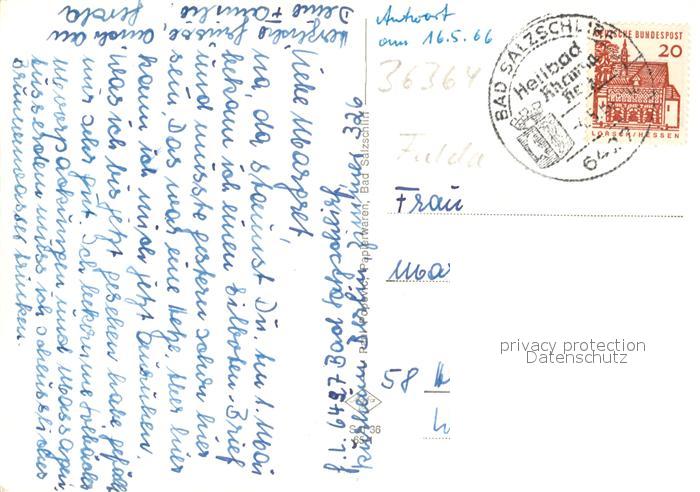 Antwort
am 16.5.66
36364
Fulda
BAD SALZSCHLIRF
Heilbad
Rheuma
64
DEUTSCHE BUNDESPOST
20
LORSCH/HESSEN
Frau
Mar
58
privacy protection
Datenschutz
Papierwaren, Bad Salzschlirf
6427 Bad Salzschlirf
Liebe Margret!
na, da staunst Du. Am 1. Mai
bekam ich einen Eilboten-Brief
und musste gestern schon hier
sein. Das war eine Hetze. Aber hier
kann ich mich jetzt ausruhen.
Was ich bis jetzt gesehen habe gefällt
mir sehr gut. Ich bekomme Solbäder
Moorpackungen und Massagen.
Ausserdem muss ich scheussliches
Brunnenwasser trinken.
Herzliche Grüsse, auch an
Deine Familie